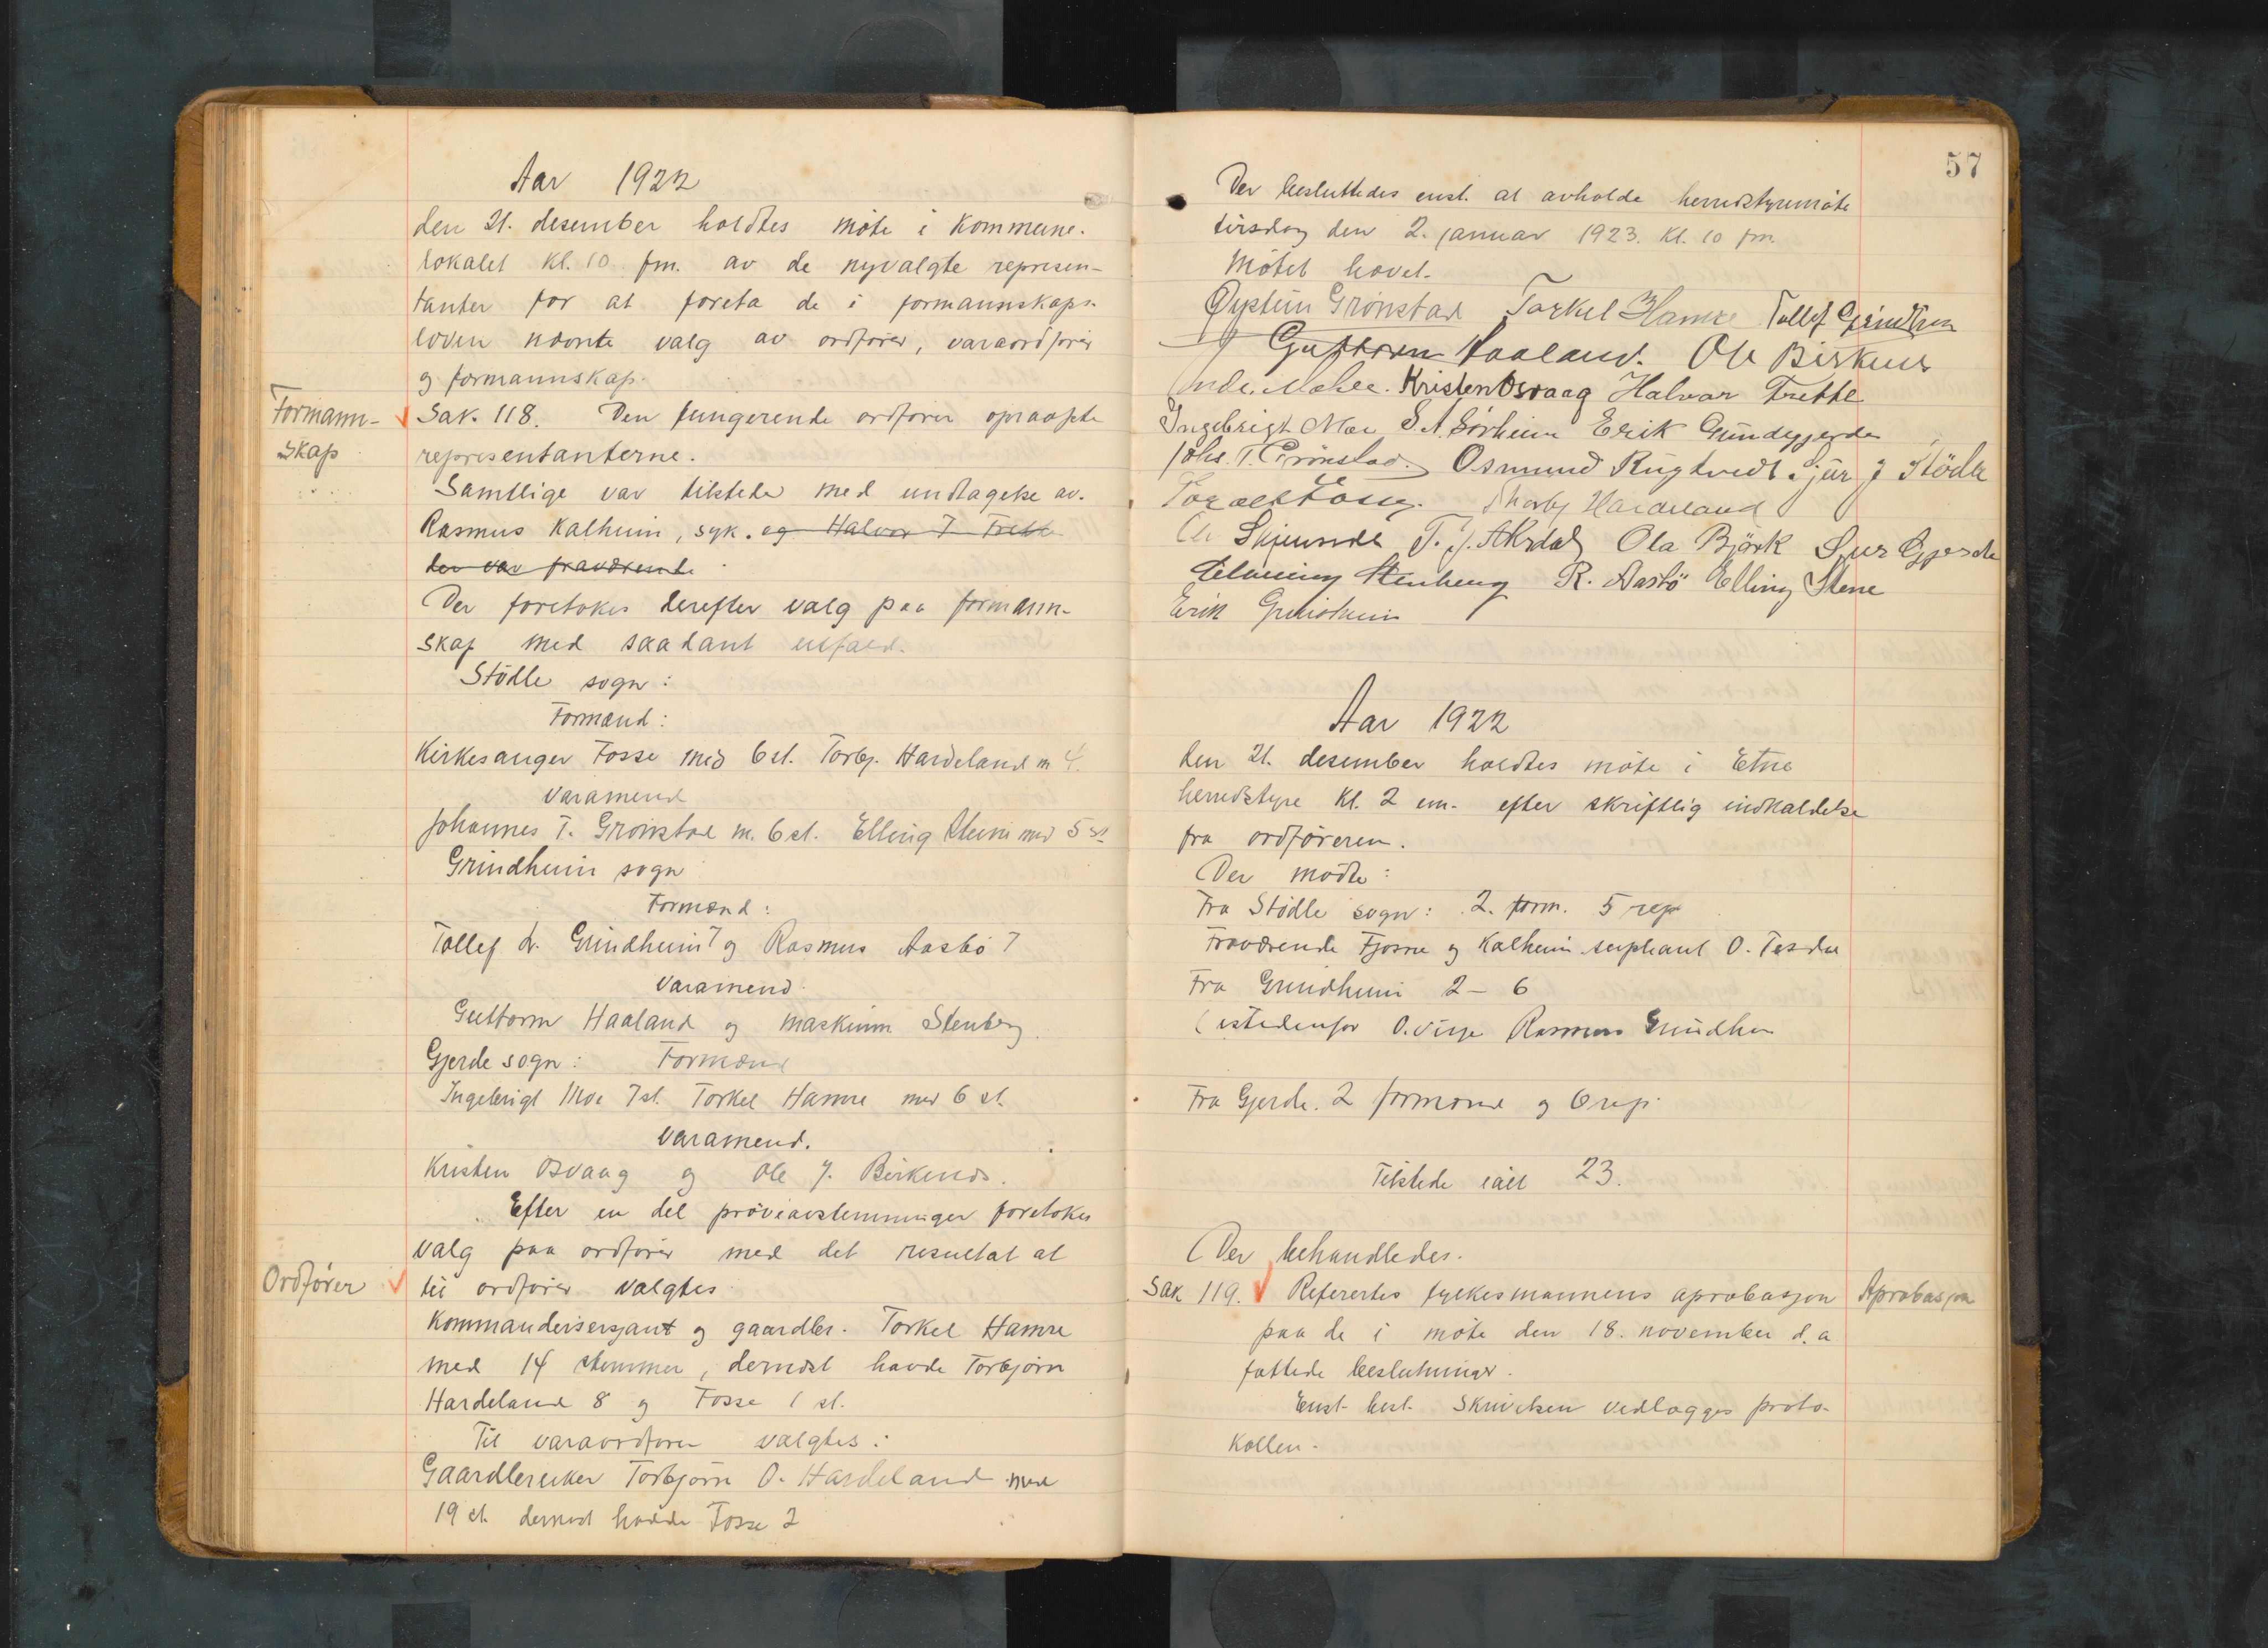 Aar 1922
den 21. desember holdtes møte i kommune-
lokalet kl. 10 fm. av de nyvalgte represen-
tanter for at foreta de i formannskaps-
loven nævnte valg av ordfører, varaordfører
og formannskap.
Formann-
skap
Sak 118. Den fungerende ordfører opraapte
representanterne.
Samtlige var tilstede med undtagelse av.
Rasmus Kalheim, syk. og Halvor T Frette
der var fraværende
Der foretokes derefter valg paa formann-
skap med saadant utfald.
Stødle sogn:
Formænd:
Kirkesanger Fosse med 6 st. Torbj. Hardeland m 4.
Varamend
Johannes T. Grønstad m. 6 st. Elling Steine med 5 st
Grindheim sogn
Formænd:
Tollef L. Grindheim 7 og Rasmus Aasbø 7
Varamend.
Guttorm Haaland og maskinm Stenberg.
Gjerde sogn: Formænd
Ingebrigt Moe 7 st. Torkel Hamre med 6 st.
Varamend.
Kristen Osvaag og Ole J. Birkenes.
Efter en del prøveavstemninger foretokes
valg paa ordfører med det resultat at
Ordfører
til ordfører valgtes
Kommandersersjant og gaardbr. Torkel Hamre
med 14 stemmer, dernæst havde Torbjørn
Hardeland 8 og Fosse 1 st.
Til varaordfører valgtes:
Gaardbruker Torbjørn O. Hardeland med
19 st. dernæst hadde Fosse 2
57
Der besluttedes enst. at avholde herredstyremøte
tirsdag den 2. januar 1923. kl. 10 fm.
Møtet hævet.
Øystein Grønstad Torkel Hamre Tollef Grindheim
Guttorm Haaland. Ole Birkenes
Kristen Osvaag Halvor Frette
Ingebrigt Moe S. A. Sørheim Erik Grindegjerde
Johs. T. Grønstad. Osmund Rygtvedt Sjur J Stødle
Torbj Hardeland
Skjensvde T. J. Akrdal Ola Bjørk Sjur Gjerde
Henning Stenberg R. Aasbø Elling Stene
Erik Grindheim
Aar 1922
den 21. desember holdtes møte i Etne
herredstyre kl. 2 em. efter skriftlig indkaldelse
fra ordføreren.
Der mødte:
Fra Stødle sogn: 2. form. 5 rep
Fraværende Fjøsne og Kalheim supleant O. Tesdal
Fra Grindheim 2 - 6
(istedenfor O. Vinje Rasmus Grindheim
Fra Gjerde. 2 formænd og 6 rep.
Tilstede ialt 23.
Der behandledes.
Sak 119. Referertes fylkesmannens aprobasjon
Aprobasjon
paa de i møte den 18. november d. a
fattede beslutninger.
Enst. besl. Skrivelsen vedlægges proto-
kollen.